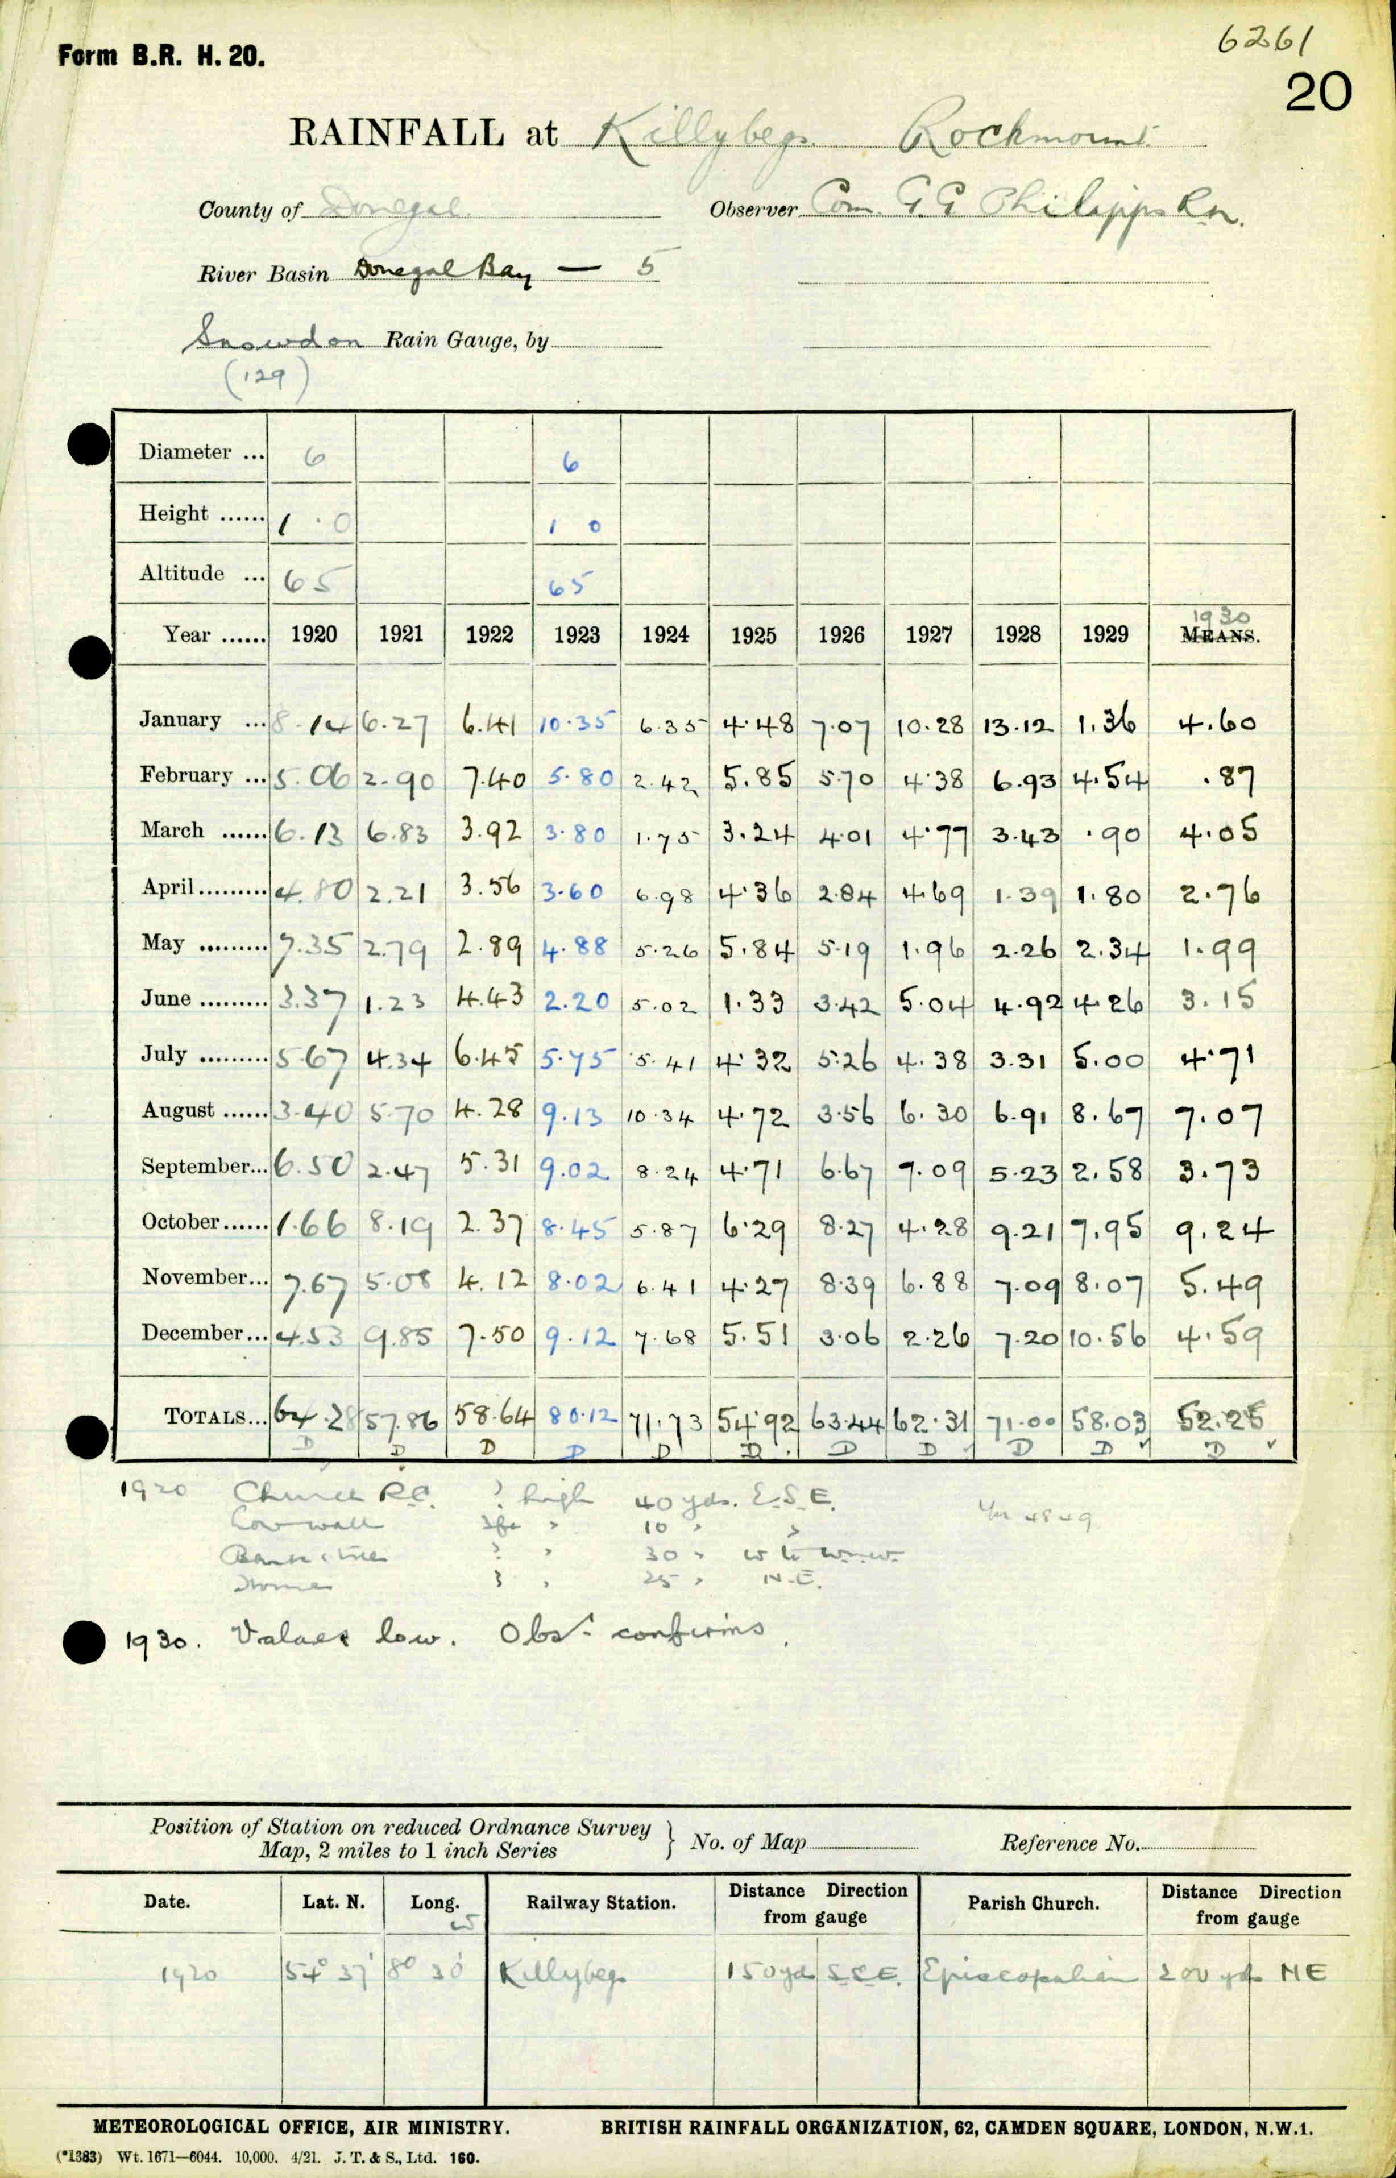 6261
Form B.R. H. 20.
20
RAINFALL at Killybegs Rockmount
County of Donegal Observer Com. G.G. Philipps R.N.
River Basin Donegal Bay — 5
Snowdon Rain Gauge, by
(129)
Diameter ... 6 6
Height ...... 1 . 0 1 0
Altitude ... 65 65
1930
Year ...... 1920 1921 1922 1923 1924 1925 1926 1927 1928 1929 MEANS.
January ... 8.14 6.27 6.41 10.35 6.35 4.48 7.07 10.28 13.12 1.36 4.60
February ... 5.06 2.90 7.40 5.80 2.42 5.85 5.70 4.38 6.93 4.54 .87
March ...... 6.13 6.83 3.92 3.80 1.75 3.24 4.01 4.77 3.43 .90 4.05
April ......... 4.80 2.21 3.56 3.60 6.98 4.36 2.84 4.69 1.39 1.80 2.76
May ......... 7.35 2.79 2.89 4.88 5.26 5.84 5.19 1.96 2.26 2.34 1.99
June ......... 3.37 1.23 4.43 2.20 5.02 1.33 3.42 5.04 4.92 4.26 3.15
July ......... 5.67 4.34 6.45 5.75 5.41 4.32 5.26 4.38 3.31 5.00 4.71
August ...... 3.40 5.70 4.28 9.13 10.34 4.72 3.56 6.30 6.91 8.67 7.07
September... 6.50 2.47 5.31 9.02 8.24 4.71 6.67 7.09 5.23 2.58 3.73
October...... 1.66 8.19 2.37 8.45 5.87 6.29 8.27 4.28 9.21 7.95 9.24
November... 7.67 5.08 4.12 8.02 6.41 4.27 8.39 6.88 7.09 8.07 5.49
December... 4.53 9.85 7.50 9.12 7.68 5.51 3.06 2.26 7.20 10.56 4.59
TOTALS... 64.28 57.86 58.64 80.12 71.73 54.92 63.44 62.31 71.00 58.03 52.25
D D D D D D D D D D D
1920 Church R.C. ? high 40 yds. E.S.E.
Low wall 3ft " 10 " "
Bank & trees ? " 30 " W to W.N.W.
House ? " 25 " N.E.
1930. Values low. Obsr. confirms.
Position of Station on reduced Ordnance Survey
Map, 2 miles to 1 inch Series } No. of Map Reference No.
Date. Lat. N. Long. W Railway Station. Distance Direction from gauge Parish Church. Distance Direction from gauge
1920 54° 37' 8° 30' Killybegs 150 yds S.S.E. Episcopalian 200 yds NE
METEOROLOGICAL OFFICE, AIR MINISTRY. BRITISH RAINFALL ORGANIZATION, 62, CAMDEN SQUARE, LONDON, N.W.1.
(*1383) Wt. 1671—6044. 10,000. 4/21. J. T. & S., Ltd. 160.